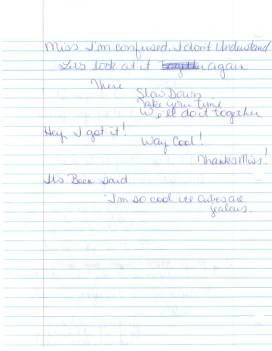 Miss I'm confused, I dont Understand
Lets look at it again
There
Slow Down
Take your time
We'll do it together
Hey I got it!
Way Cool!
Thanks Miss!
Its Been Said
"I'm so cool ice cubes are
jealous.